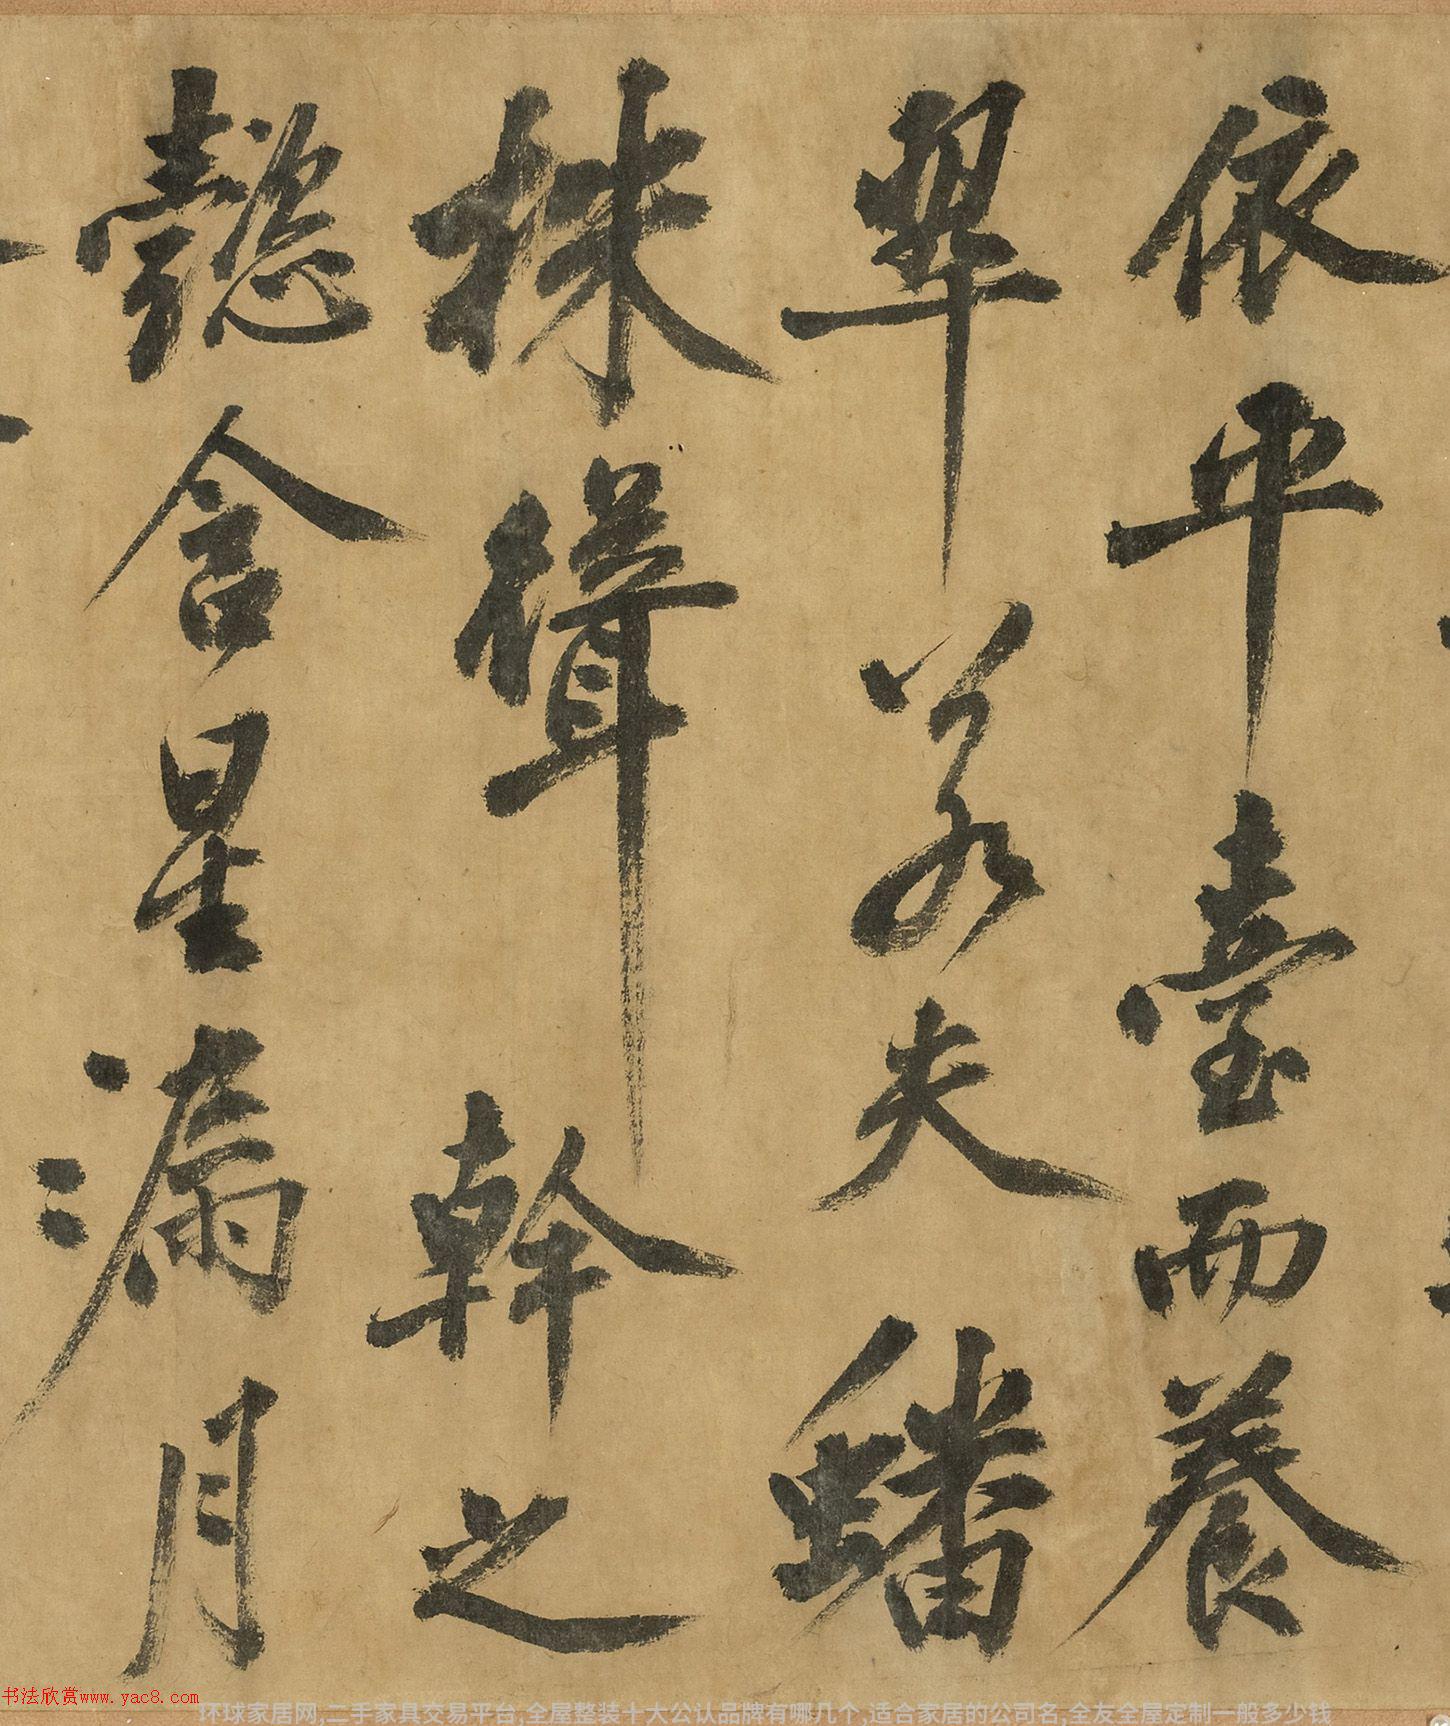 依平臺而養
翠若夫蟠
株聳幹之
懿含星漏月
书法欣赏www.yac8.com
环球家居网,二手家具交易平台,全屋整装十大公认品牌有哪几个,适合家居的公司名,全友全屋定制一般多少钱